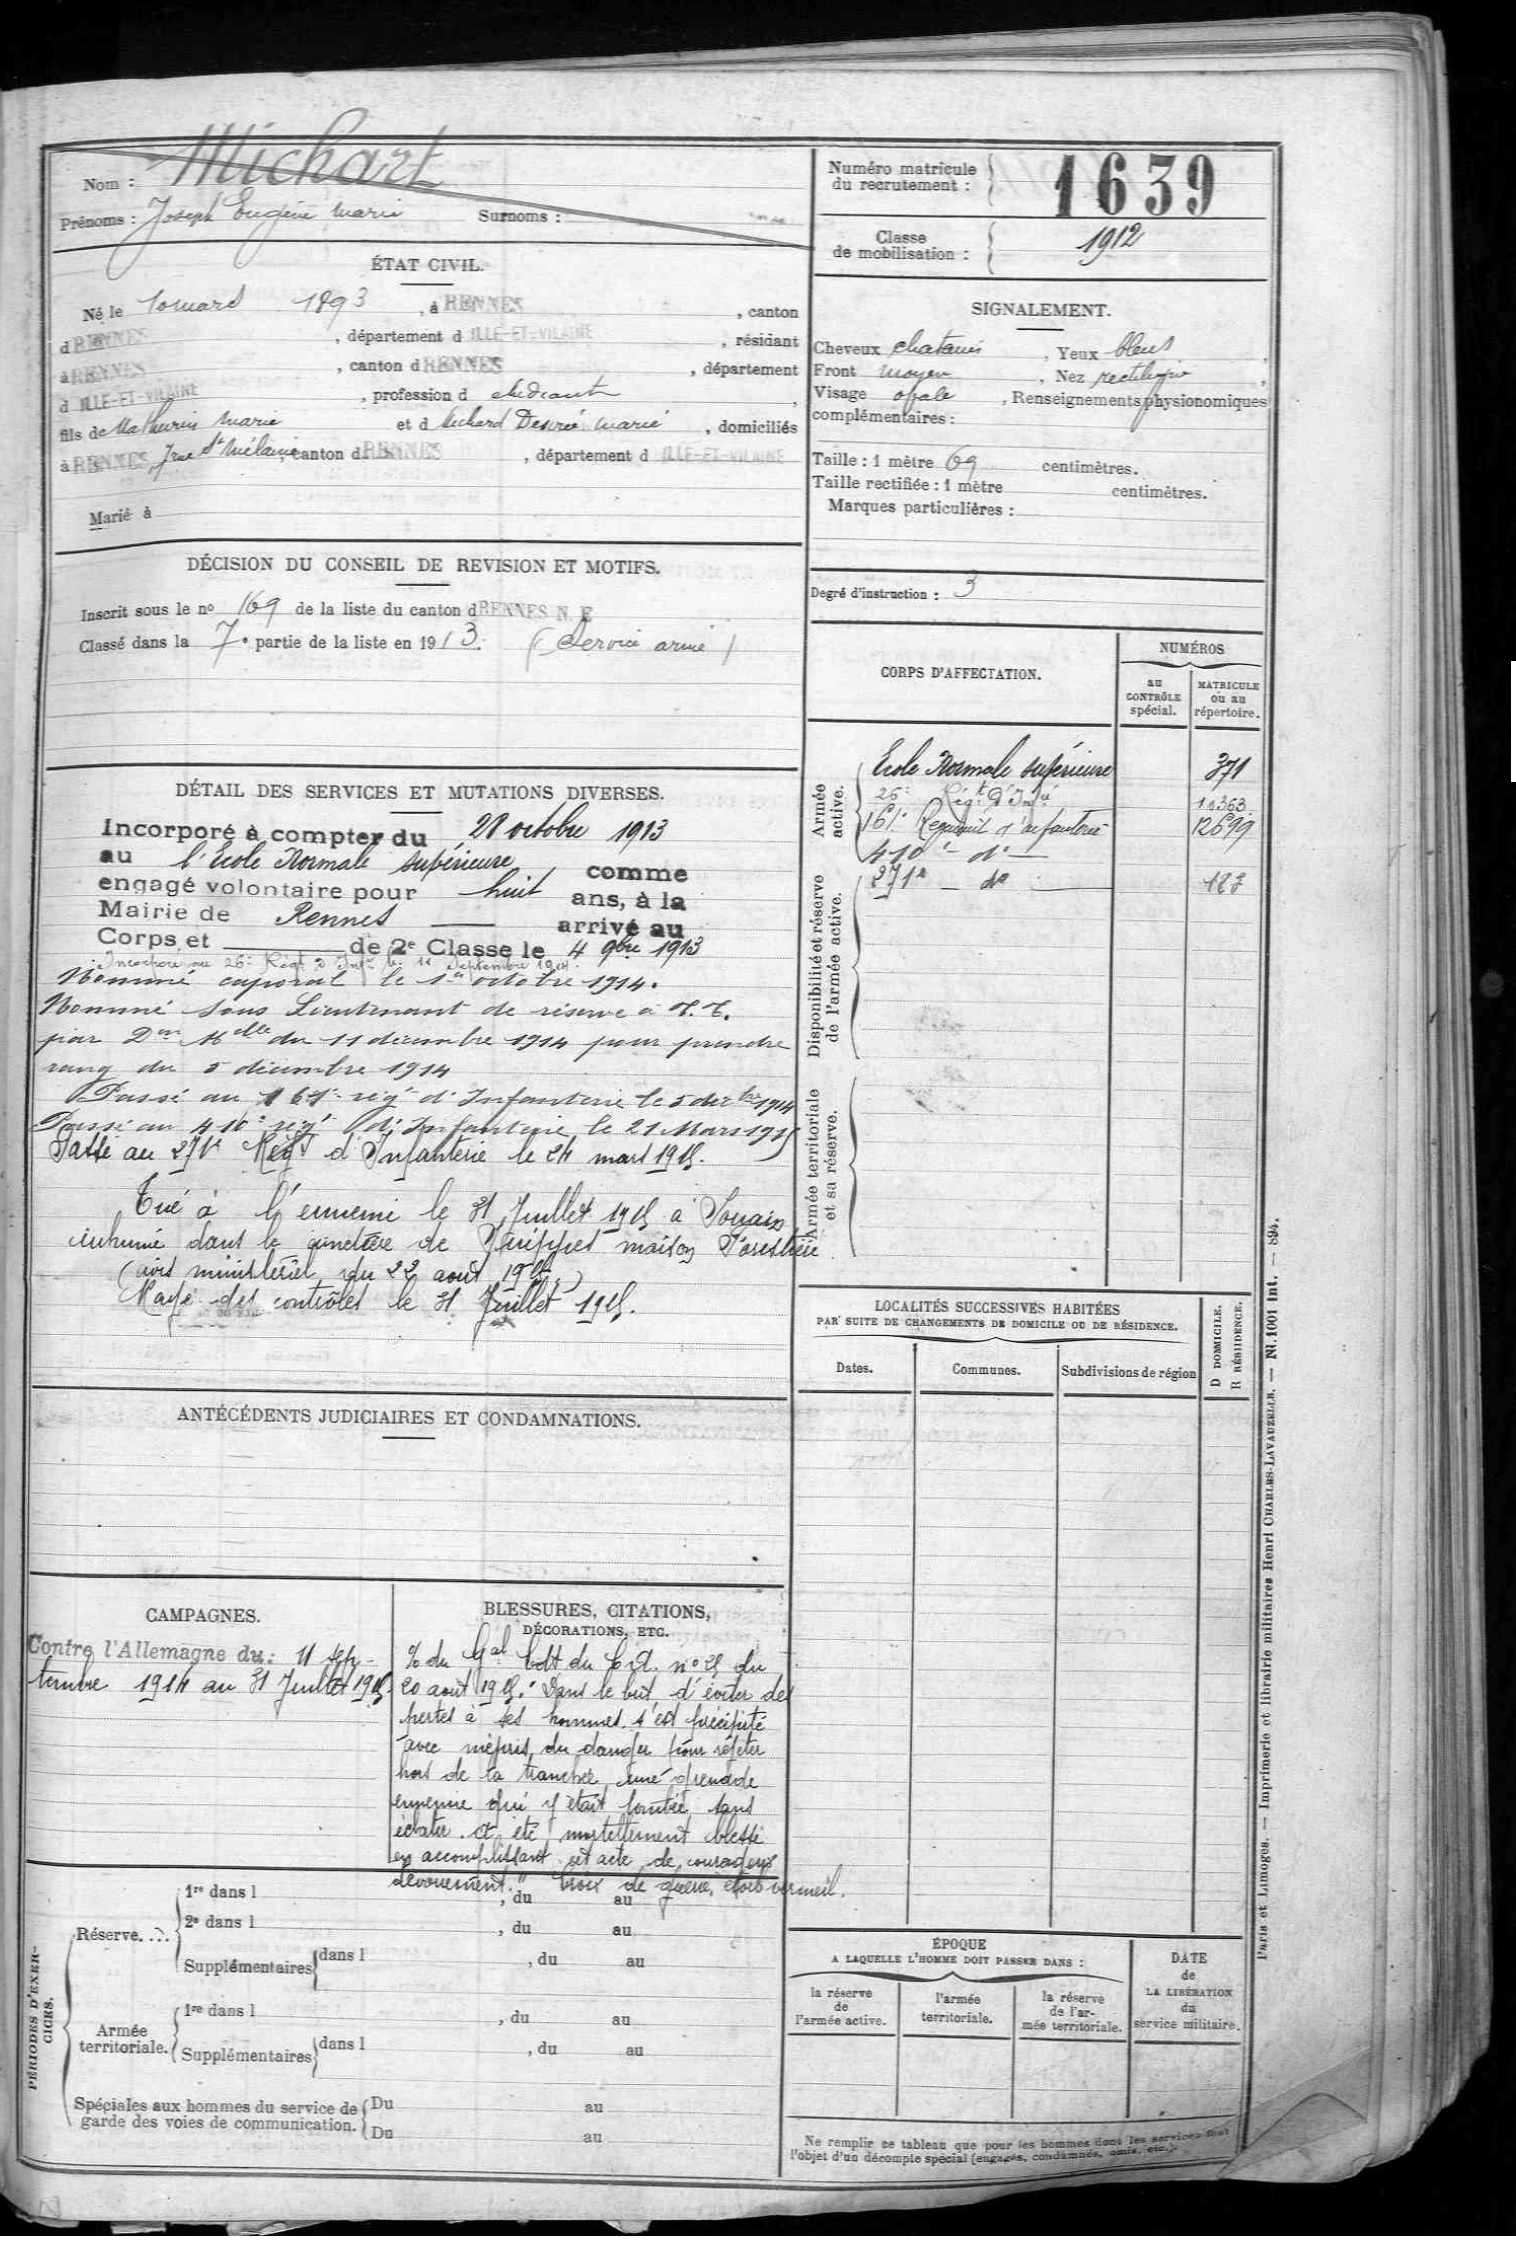 Nom : Michart
Prénoms : Joseph Eugène Marie Surnoms :
ÉTAT CIVIL.
Né le 10 mars 1893, à RENNES, canton
d RENNES, département d ILLE-ET-VILAINE, résidant
à RENNES, canton d RENNES, département
d ILLE-ET-VILAINE, profession d étudiant,
fils de Mathurin Marie et d Richard Désirée Marie, domiciliés
à RENNES, 7 rue St Mélaine, canton d RENNES, département d ILLE-ET-VILAINE
Marié à
DÉCISION DU CONSEIL DE REVISION ET MOTIFS.
Inscrit sous le no 169 de la liste du canton d RENNES N. E
Classé dans la 7e partie de la liste en 1913. (Service armé)
DÉTAIL DES SERVICES ET MUTATIONS DIVERSES.
Incorporé à compter du 28 octobre 1913
au l'Ecole Normale supérieure comme
engagé volontaire pour huit ans, à la
Mairie de Rennes arrivé au
Corps et de 2e Classe le 4 9bre 1913
Incorporé au 26e Régt d'Infie le 11 Septembre 1914.
Nommé caporal le 1er octobre 1914.
Nommé Sous Lieutenant de réserve à T.T.
par Don Mlle du 11 décembre 1914 pour prendre
rang du 5 décembre 1914
Passé au 161e régt d'Infanterie le 5 decbre 1914
Passé au 410e régt d'Infanterie le 21 Mars 1915
Passé au 271e Régt d'Infanterie le 24 mars 1915.
Tué à l'ennemi le 31 Juillet 1915 à Souain
inhumé dans le cimetière de Suippes maison Forestière
(avis ministériel du 22 aout 1915)
Rayé des contrôles le 31 Juillet 1915.
ANTÉCÉDENTS JUDICIAIRES ET CONDAMNATIONS.
CAMPAGNES.
Contre l'Allemagne du: 11 sep-
tembre 1914 au 31 Juillet 1915.
BLESSURES, CITATIONS,
DÉCORATIONS, ETC.
% du Gal Cdt du C.A. no 25 du
20 aout 1915. "Dans le but d'éviter des
pertes à ses hommes, s'est précipité
avec mépris du danger pour rejeter
hors de la tranchée une grenade
ennemie qui y était tombée sans
éclater. A été mortellement blessé
en accomplissant cet acte de courageux
dévouement." Croix de guerre, étoile vermeil.
PÉRIODES D'EXER-
CICES.
Réserve...
1re dans l , du au
2e dans l , du au
Supplémentaires dans l , du au
Armée
territoriale.
1re dans l , du au
Supplémentaires dans l , du au
Spéciales aux hommes du service de
garde des voies de communication.
Du au
Du au
Numéro matricule
du recrutement : 1639
Classe
de mobilisation : 1912
SIGNALEMENT.
Cheveux chatains, Yeux bleus,
Front moyen, Nez rectiligne,
Visage ovale, Renseignements physionomiques
complémentaires :
Taille : 1 mètre 69 centimètres.
Taille rectifiée : 1 mètre centimètres.
Marques particulières :
Degré d'instruction : 3
CORPS D'AFFECTATION.
NUMÉROS
au
CONTRÔLE
spécial.
MATRICULE
ou au
répertoire.
Armée
active.
Ecole Normale supérieure 371
26e Régt d'Infie 11363
161e Régiment d'infanterie 12699
410e - do -
Disponibilité et réserve
de l'armée active.
271e - do 183
Armée territoriale
et sa réserve.
LOCALITÉS SUCCESSIVES HABITÉES
PAR SUITE DE CHANGEMENTS DE DOMICILE OU DE RÉSIDENCE.
Dates.
Communes.
Subdivisions de région
D DOMICILE.
R RÉSIDENCE.
ÉPOQUE
A LAQUELLE L'HOMME DOIT PASSER DANS :
la réserve
de
l'armée active.
l'armée
territoriale.
la réserve
de l'ar-
mée territoriale.
DATE
de
LA LIBÉRATION
du
service militaire.
Ne remplir ce tableau que pour les hommes dont les services font
l'objet d'un décompte spécial (engagés, condamnés, omis, etc.).
Paris et Limoges. — Imprimerie et librairie militaires Henri CHARLES-LAVAUZELLE. — Ni. 1001 int. — 894.